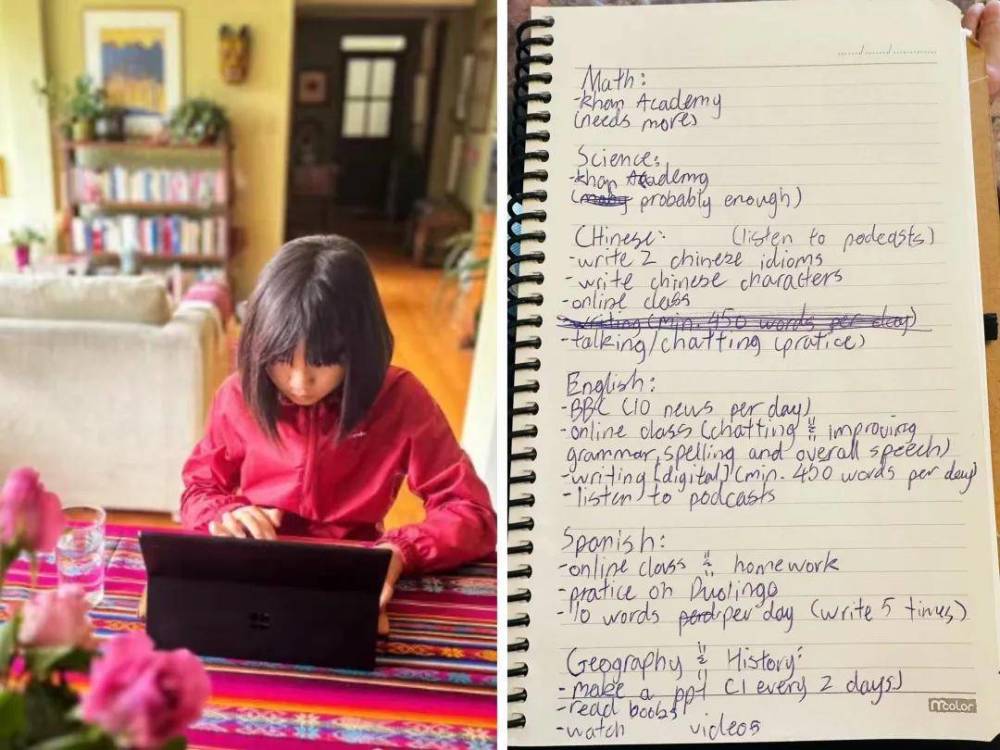 Math:
-khan Academy
(needs more)
Science:
-khan Academy
( probably enough)
Chinese: (listen to podcasts)
-write 2 chinese idioms
-write chinese characters
-online class
writing (min. 450 words per day)
-talking/chatting (pratice)
English:
-BBC (10 news per day)
-online class (chatting & improving
grammar, spelling and overall speech)
-writing [digital] (min. 450 words per day)
-listen to podcasts
Spanish:
-online class & homework
-pratice on Duolingo
-10 words per day (write 5 times)
Geography & History:
-make a ppt (1 every 2 days)
-read books
-watch videos
mcolor